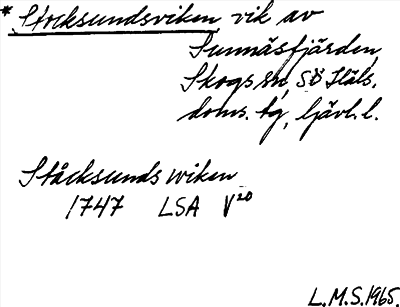 * Stocksundsviken vik av
Sunnäsfjärden,
Skogs sn, SÖ Häls.
doms. tg, Gävl. l.
Ståcksunds wiken
1747 LSA V²⁰
L.M.S. 1965.